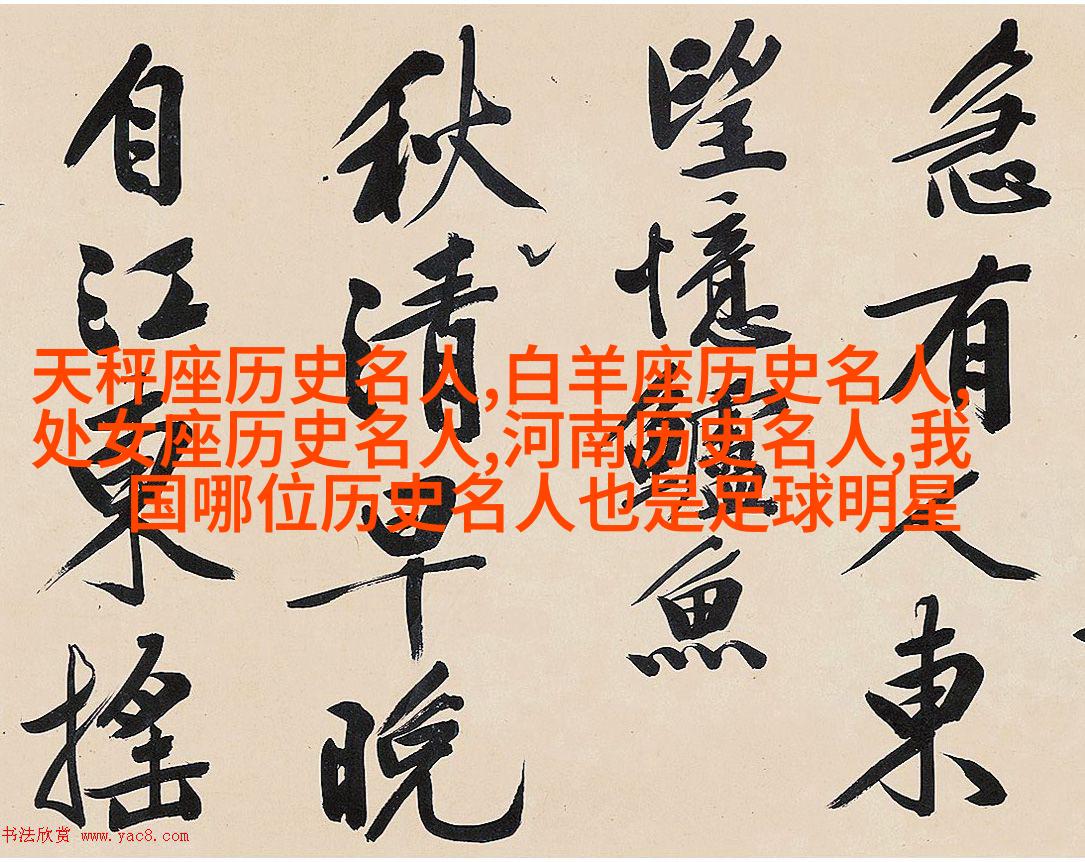 急有人東
望憶鱸魚
秋清早晚
自江東搖
天秤座历史名人,白羊座历史名人,
处女座历史名人,河南历史名人,我
国哪位历史名人也是足球明星
书法欣赏 www.yac8.com